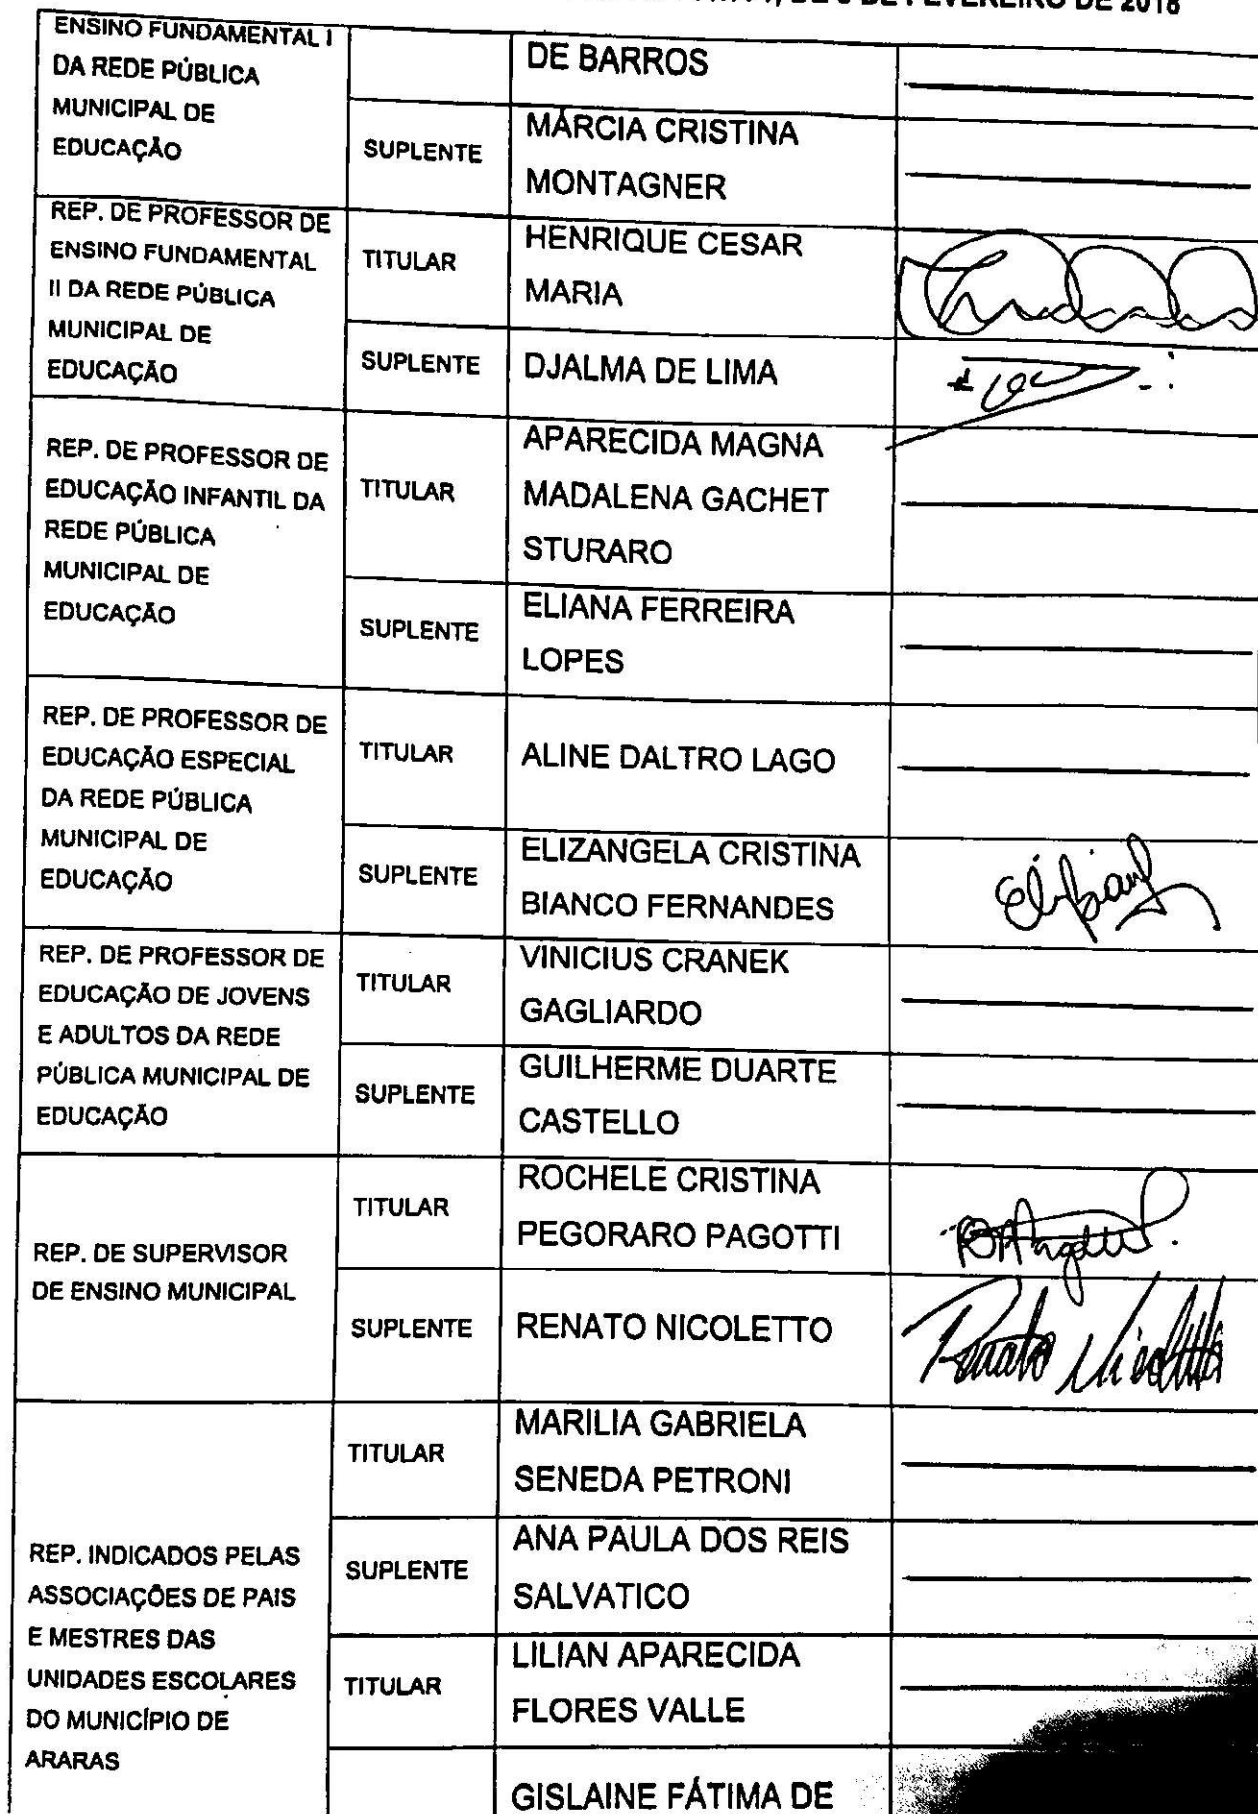 DE FEVEREIRO DE 2018
ENSINO FUNDAMENTAL I
DA REDE PÚBLICA
MUNICIPAL DE
EDUCAÇÃO
DE BARROS
SUPLENTE
MÁRCIA CRISTINA
MONTAGNER
REP. DE PROFESSOR DE
ENSINO FUNDAMENTAL
II DA REDE PÚBLICA
MUNICIPAL DE
EDUCAÇÃO
TITULAR
HENRIQUE CESAR
MARIA
SUPLENTE
DJALMA DE LIMA
REP. DE PROFESSOR DE
EDUCAÇÃO INFANTIL DA
REDE PÚBLICA
MUNICIPAL DE
EDUCAÇÃO
TITULAR
APARECIDA MAGNA
MADALENA GACHET
STURARO
SUPLENTE
ELIANA FERREIRA
LOPES
REP. DE PROFESSOR DE
EDUCAÇÃO ESPECIAL
DA REDE PÚBLICA
MUNICIPAL DE
EDUCAÇÃO
TITULAR
ALINE DALTRO LAGO
SUPLENTE
ELIZANGELA CRISTINA
BIANCO FERNANDES
REP. DE PROFESSOR DE
EDUCAÇÃO DE JOVENS
E ADULTOS DA REDE
PÚBLICA MUNICIPAL DE
EDUCAÇÃO
TITULAR
VINICIUS CRANEK
GAGLIARDO
SUPLENTE
GUILHERME DUARTE
CASTELLO
REP. DE SUPERVISOR
DE ENSINO MUNICIPAL
TITULAR
ROCHELE CRISTINA
PEGORARO PAGOTTI
SUPLENTE
RENATO NICOLETTO
Renato Nicoletto
REP. INDICADOS PELAS
ASSOCIAÇÕES DE PAIS
E MESTRES DAS
UNIDADES ESCOLARES
DO MUNICÍPIO DE
ARARAS
TITULAR
MARILIA GABRIELA
SENEDA PETRONI
SUPLENTE
ANA PAULA DOS REIS
SALVATICO
TITULAR
LILIAN APARECIDA
FLORES VALLE
GISLAINE FÁTIMA DE